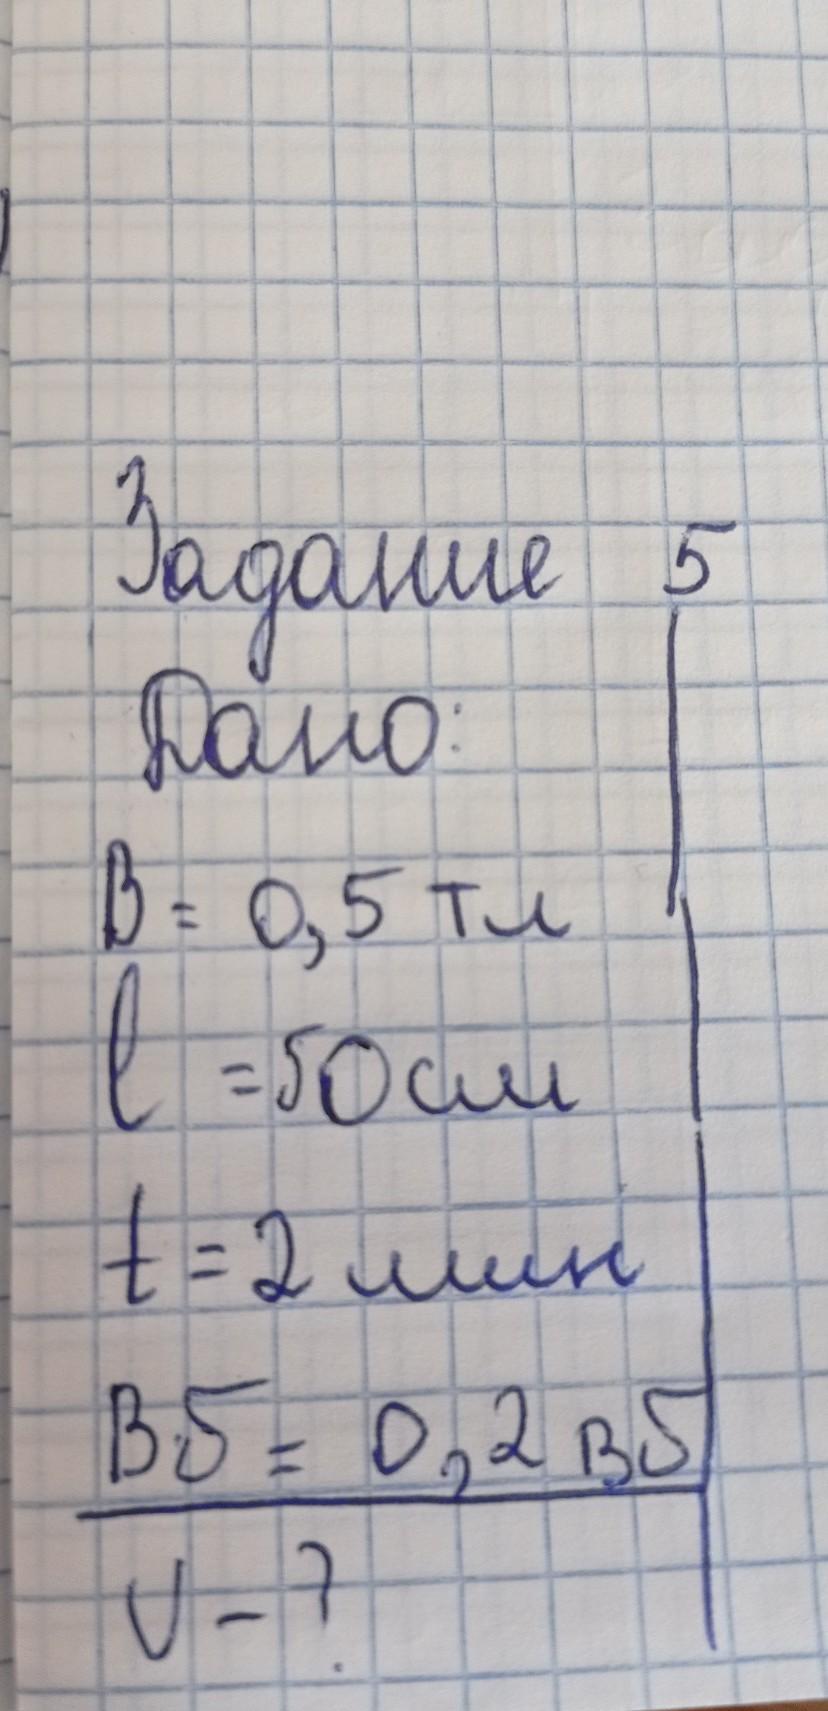 Задание 5
Дано:
B = 0,5 Тл
l = 50 см
t = 2 мин
Вб = 0,2 Вб
V - ?